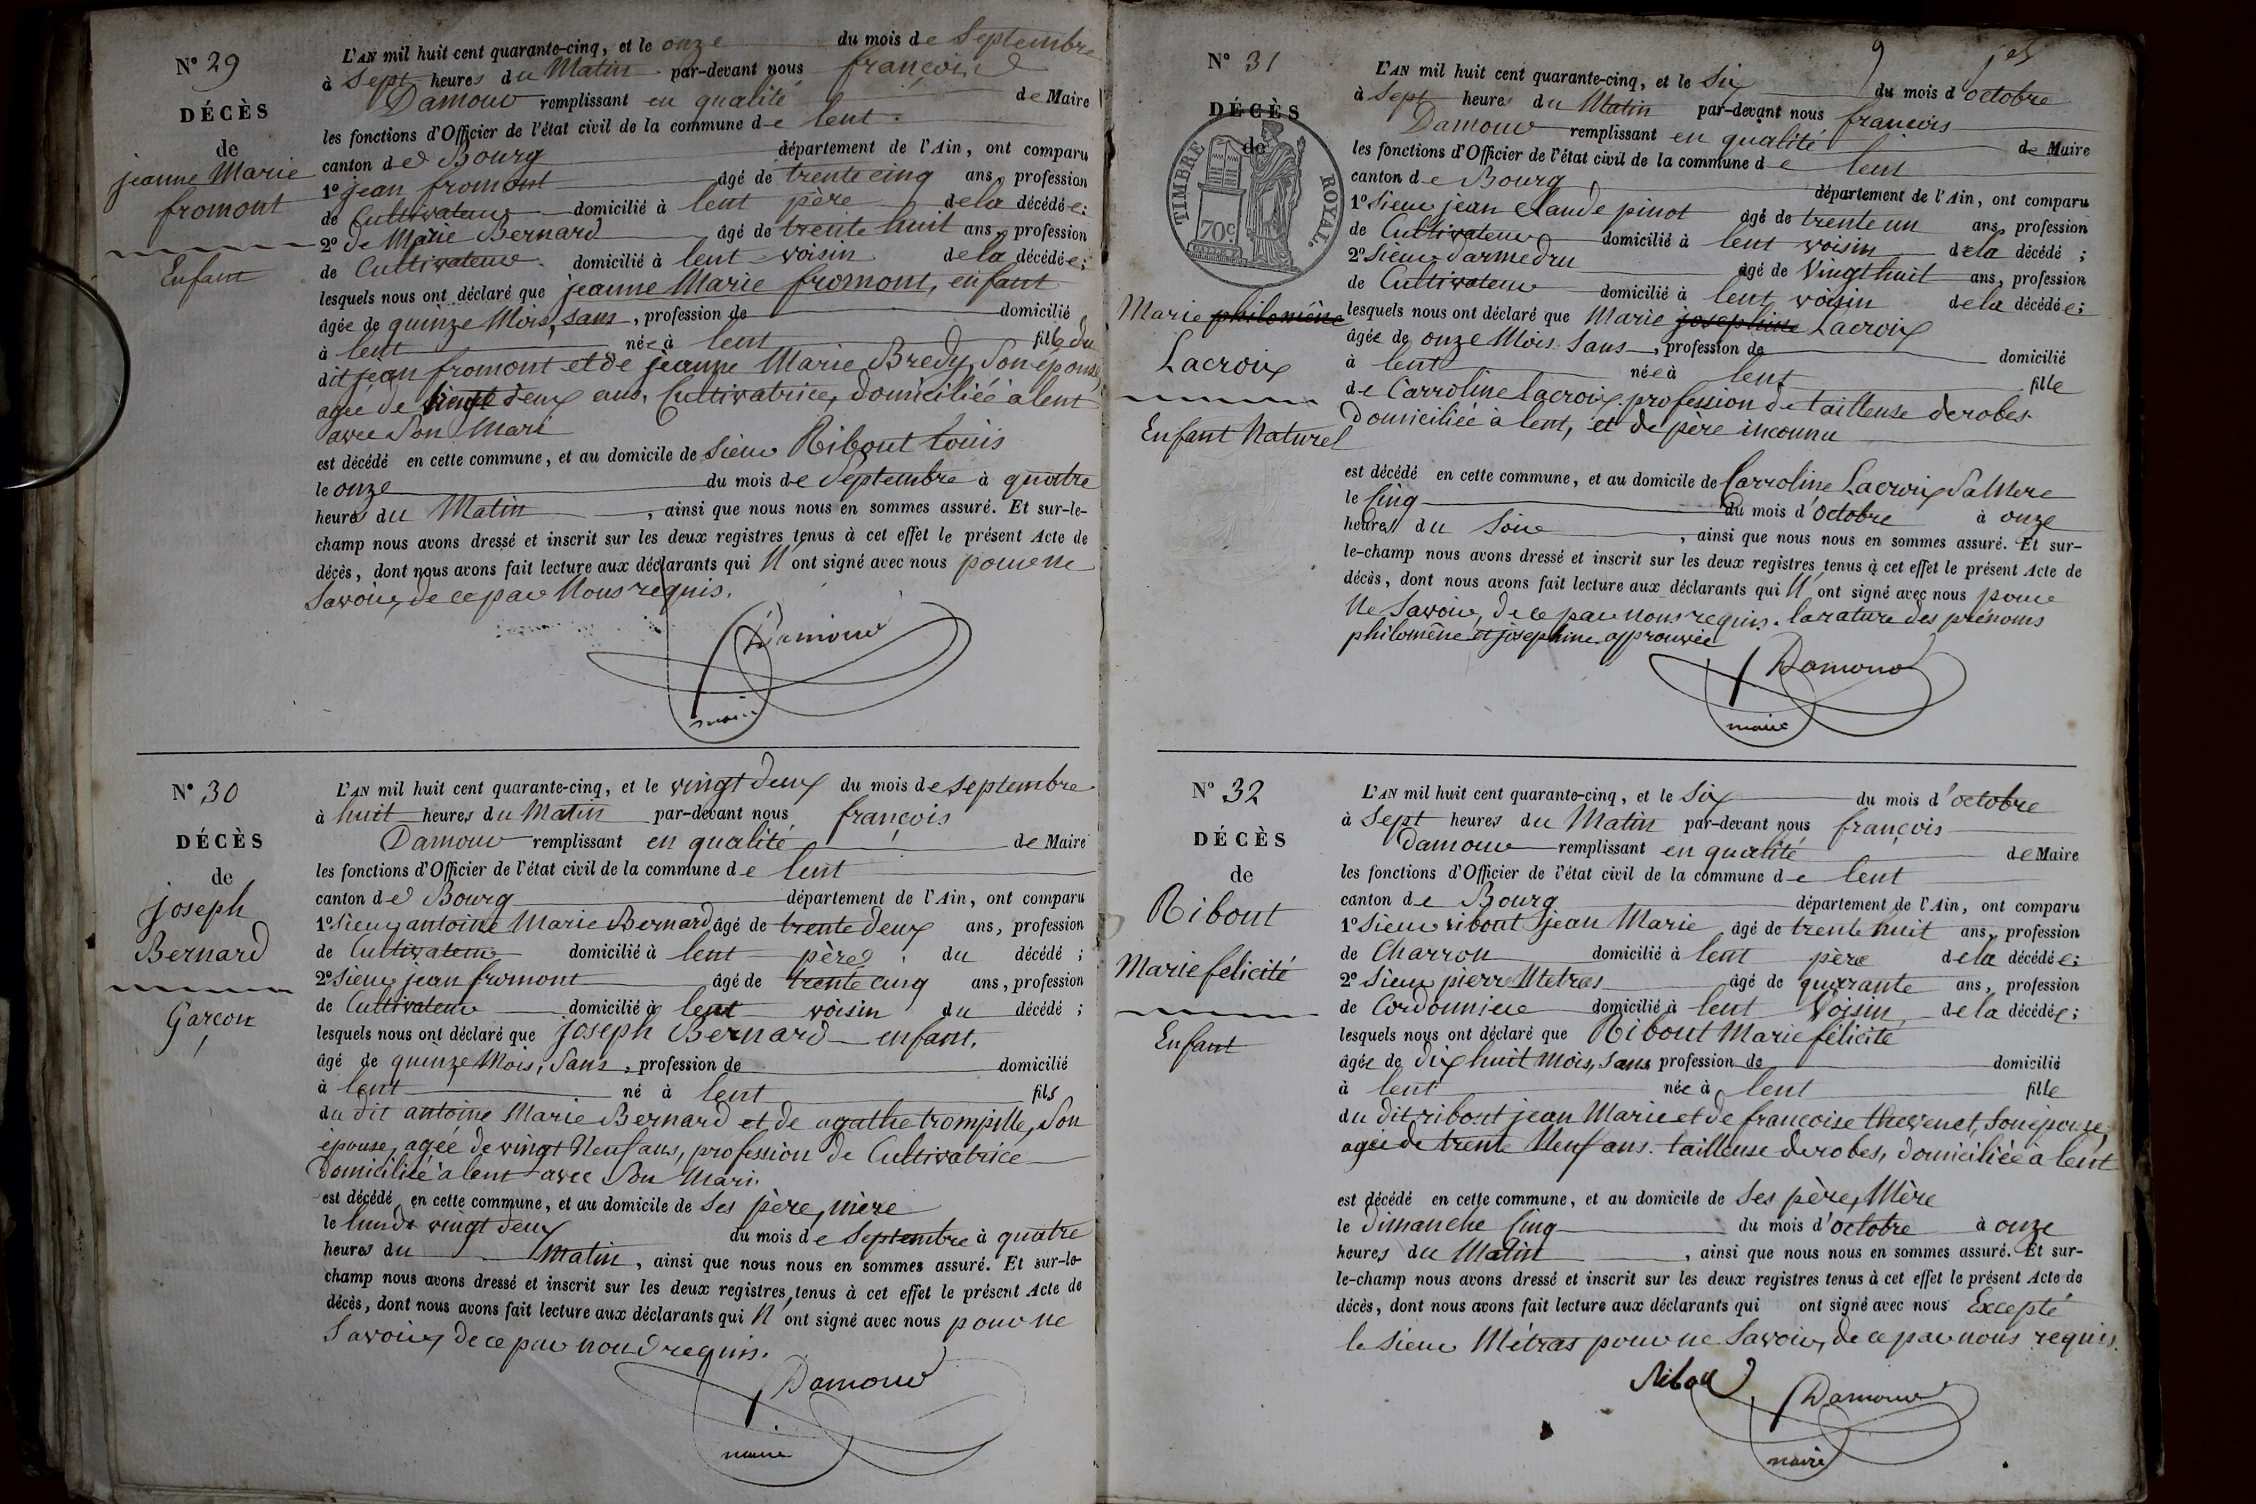 N° 29
DÉCÈS
de
jeanne Marie
fromont
Enfant
L'AN mil huit cent quarante-cinq, et le onze du mois de Septembre
à Sept heures du Matin par-devant nous françois
Damour remplissant en qualité de Maire
les fonctions d'Officier de l'état civil de la commune de lent.
canton de Bourg département de l'Ain, ont comparu
1° jean fromont âgé de trente cinq ans, profession
de Cultivateur domicilié à lent père de la décédée;
2° de Marie Bernard âgé de trente huit ans, profession
de Cultivateur domicilié à lent voisin de la décédée;
lesquels nous ont déclaré que jeanne Marie fromont, enfant
âgée de quinze Mois, Sans, profession de domicilié
à lent née à lent fille du
dit jean fromont et de jeanne Marie Bredy, Son épouse,
agée de vingt deux ans, Cultivatrice, domiciliée à lent
avec Son Mari
est décédé en cette commune, et au domicile de Sieur Ribout Louis
le onze du mois de Septembre à quatre
heures du Matin, ainsi que nous nous en sommes assuré. Et sur-le-
champ nous avons dressé et inscrit sur les deux registres tenus à cet effet le présent Acte de
décès, dont nous avons fait lecture aux déclarants qui N'ont signé avec nous pour ne
Savoir, de ce par Nous requis.
Damour
maire
N° 30
DÉCÈS
de
joseph
Bernard
Garçon
L'AN mil huit cent quarante-cinq, et le vingt deux du mois de septembre
à huit heures du Matin par-devant nous françois
Damour remplissant en qualité de Maire
les fonctions d'Officier de l'état civil de la commune de lent
canton de Bourg département de l'Ain, ont comparu
1° Sieur antoine Marie Bernard âgé de trente deux ans, profession
de Cultivateur domicilié à lent père du décédé;
2° Sieur jean fromont âgé de trente cinq ans, profession
de Cultivateur domicilié à lent voisin du décédé;
lesquels nous ont déclaré que joseph Bernard enfant.
âgé de quinze Mois, Sans, profession de domicilié
à lent né à lent fils
du dit antoine Marie Bernard et de agathe trompille, Son
épouse, agée de vingt Neuf ans, profession de Cultivatrice
Domiciliée à lent avec Son Mari.
est décédé en cette commune, et au domicile de Ses père, mère
le lundi vingt deux du mois de Septembre à quatre
heures du Matin, ainsi que nous nous en sommes assuré. Et sur-le-
champ nous avons dressé et inscrit sur les deux registres tenus à cet effet le présent Acte de
décès, dont nous avons fait lecture aux déclarants qui N'ont signé avec nous pour ne
Savoir, de ce par nous requis.
Damour
maire
N° 31
DÉCÈS
de
TIMBRE ROYAL.
70 c.
Marie philomène
Lacroix
Enfant Naturel
9
L'AN mil huit cent quarante-cinq, et le Six du mois d'octobre
à Sept heures du Matin par-devant nous francois
Damour remplissant en qualité de Maire
les fonctions d'Officier de l'état civil de la commune de lent
canton de Bourg département de l'Ain, ont comparu
1° Sieur jean Claude pinot âgé de trente un ans, profession
de Cultivateur domicilié à lent voisin de la décédé;
2° Sieur darmedru âgé de Vingt huit ans, profession
de Cultivateur domicilié à lent voisin de la décédée;
lesquels nous ont déclaré que Marie josephine Lacroix
âgée de onze Mois Sans, profession de domicilié
à lent née à lent fille
de Carroline Lacroix profession de tailleuse de robes
domiciliée à lent, et de père inconnu
est décédé en cette commune, et au domicile de Carroline Lacroix Sa Mère
le Cinq du mois d'octobre à onze
heures du Soir, ainsi que nous nous en sommes assuré. Et sur-
le-champ nous avons dressé et inscrit sur les deux registres tenus à cet effet le présent Acte de
décès, dont nous avons fait lecture aux déclarants qui N'ont signé avec nous pour
Ne Savoir, de ce par nous requis. la rature des prénoms
philomène et josephine approuvée
Damour
maire
N° 32
DÉCÈS
de
Ribout
Marie felicité
Enfant
L'AN mil huit cent quarante-cinq, et le Six du mois d'octobre
à Sept heures du Matin par-devant nous françois
Damour remplissant en qualité de Maire
les fonctions d'Officier de l'état civil de la commune de lent
canton de Bourg département de l'Ain, ont comparu
1° Sieur ribout jean Marie âgé de trente huit ans, profession
de Charron domicilié à lent père de la décédée;
2° Sieur pierre Metras âgé de quarante ans, profession
de Cordonnier domicilié à lent Voisin de la décédée;
lesquels nous ont déclaré que Ribout Marie félicité
âgée de dix huit Mois, Sans profession de domicilié
à lent née à lent fille
du dit ribout jean Marie et de francoise thevenet, Son épouse,
agée de trente Neuf ans. tailleuse de robes, domiciliée à lent
est décédé en cette commune, et au domicile de Ses père, Mère
le dimanche Cinq du mois d'octobre à onze
heures du Matin, ainsi que nous nous en sommes assuré. Et sur-
le-champ nous avons dressé et inscrit sur les deux registres tenus à cet effet le présent Acte de
décès, dont nous avons fait lecture aux déclarants qui ont signé avec nous Excepté
le Sieur Métras pour ne Savoir, de ce par nous requis.
Ribout
Damour
maire